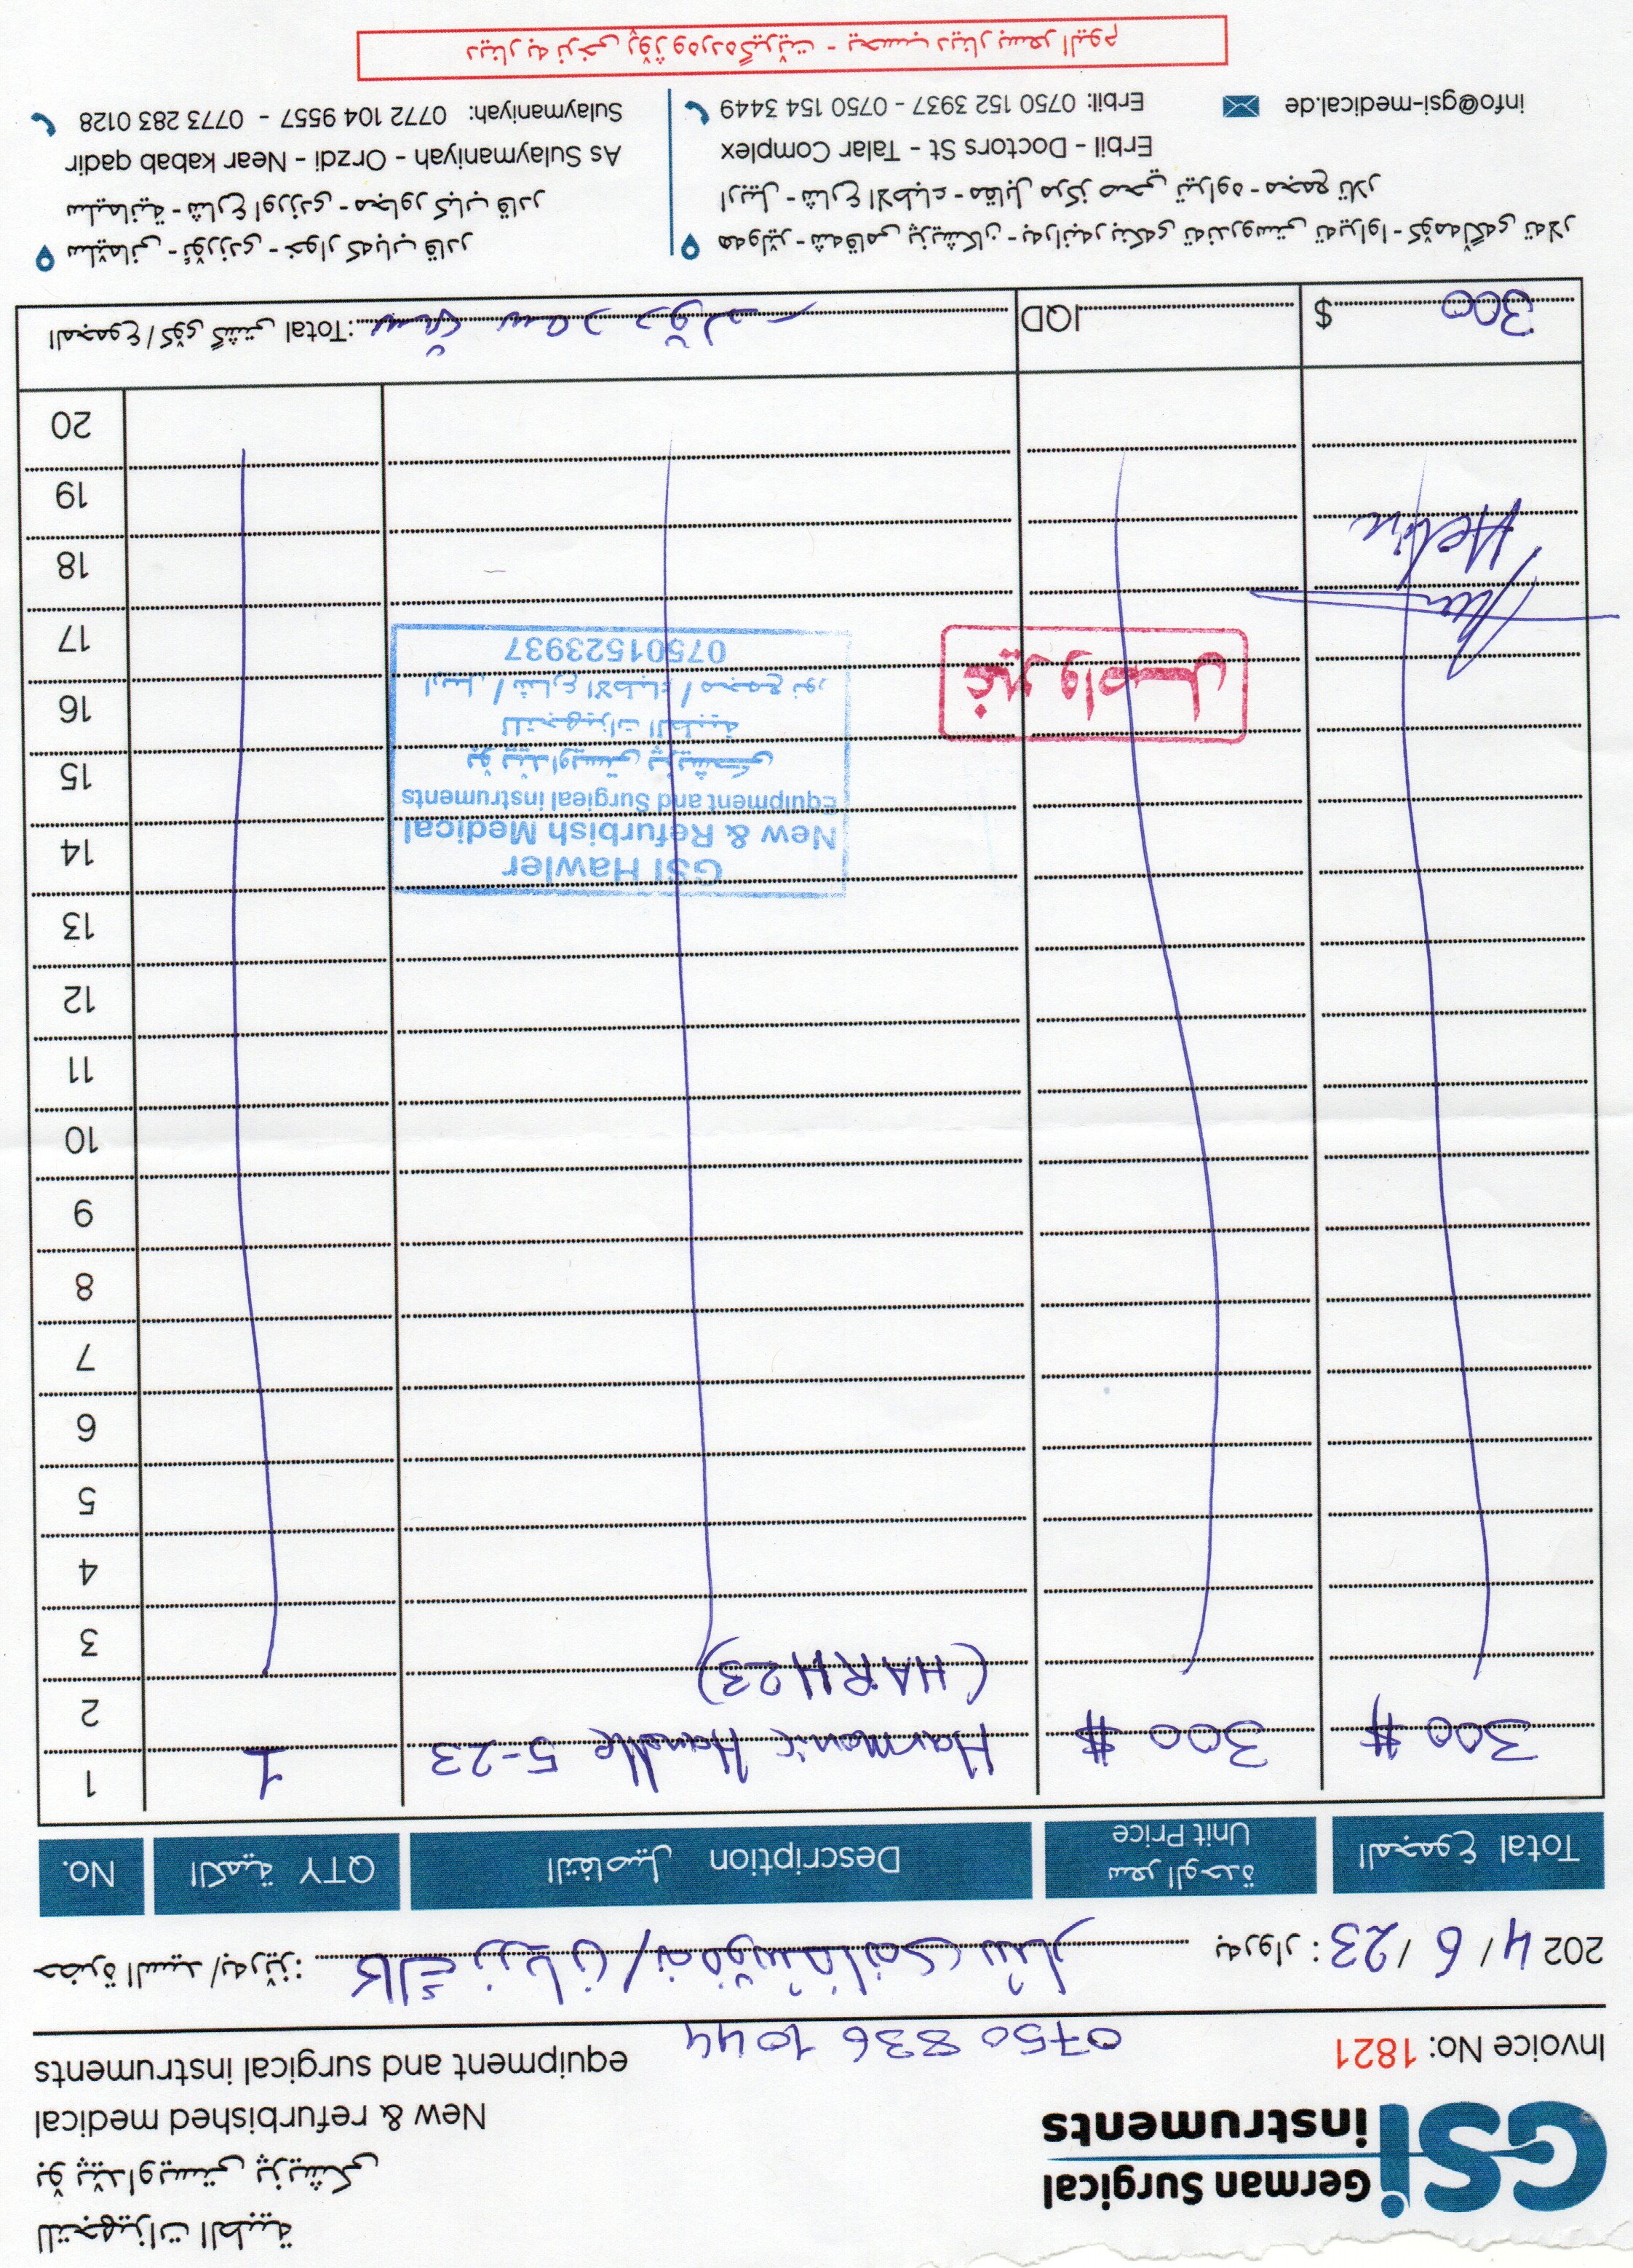 GSi German Surgical
instruments
للتجهيزات الطبية
بۆ پێداویستی پزیشکی
New & refurbished medical
equipment and surgical instruments
Invoice No: 1821
0750 836 1044
حضرة السيد /بەرێز: كاك زريان / نەخۆشخانەی شار
بەروار: 2024 / 6 / 23
No. QTY الكمية Description التفاصيل سعر الوحدة Unit Price Total المجموع
1 1 Harmonic Handle 5-23 300 $ 300 $
2 (HARH23)
3
4
5
6
7
8
9
10
11
12
13
14
15
16
17
18
19
20
GSI Hawler
New & Refurbish Medical
Equipment and Surgieal instruments
بۆ پێداویستی پزیشکی
للتجهيزات الطبية
اربيل / شارع الاطباء / مجمع نور
07501523937
غير واصل
Helin
المجموع / کۆی گشتی Total: سێ سەد دۆلار IQD 300 $
سلێمانی - ئۆرزدی - خوار کەباب قادر
سليمانية - شارع اورزدی - مجاور كباب قادر
As Sulaymaniyah - Orzdi - Near kabab qadir
Sulaymaniyah: 0772 104 9557 - 0773 283 0128
هەولێر - شەقامی پزیشکان - بەرانبەر بنکەی تەندروستی تەیراوا - کۆمەڵگەی تەلار
اربيل - شارع الاطباء - مقابل مركز صحي تيراوه - مجمع تلار
Erbil - Doctors St - Talar Complex
Erbil: 0750 152 3937 - 0750 154 3449
info@gsi-medical.de
دینار بە نرخی ڕۆژ وەردەگیرێت - يحسب دينار بسعر اليوم